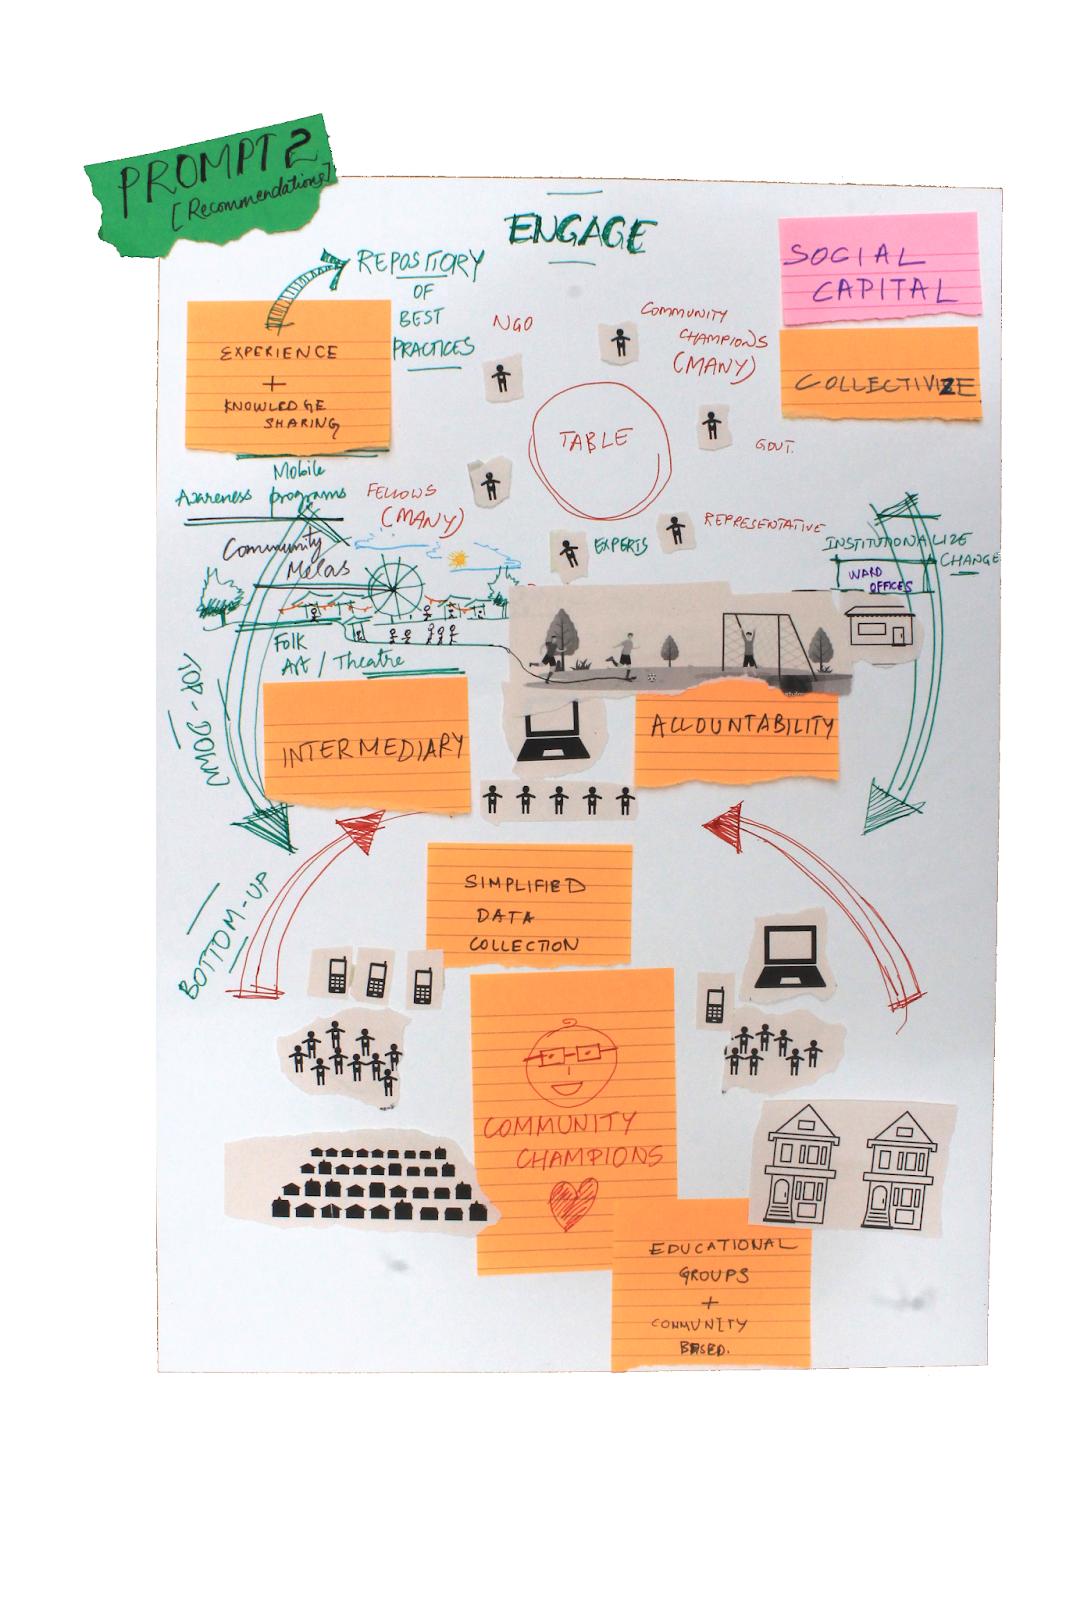 PROMPT 2
[Recommendations]
ENGAGE
SOCIAL
CAPITAL
COLLECTIVIZE
REPOSITORY
OF
BEST
PRACTICES
EXPERIENCE
+
KNOWLEDGE
SHARING
NGO
COMMUNITY
CHAMPIONS
(MANY)
TABLE
GOVT.
FELLOWS
(MANY)
EXPERTS
REPRESENTATIVE
Mobile
Awareness programs
Community
Melas
FOLK
Art / Theatre
INSTITUTIONALIZE
CHANGE
WARD
OFFICES
TOP-DOWN
INTERMEDIARY
ACCOUNTABILITY
BOTTOM-UP
SIMPLIFIED
DATA
COLLECTION
COMMUNITY
CHAMPIONS
EDUCATIONAL
GROUPS
+
COMMUNITY
BASED.